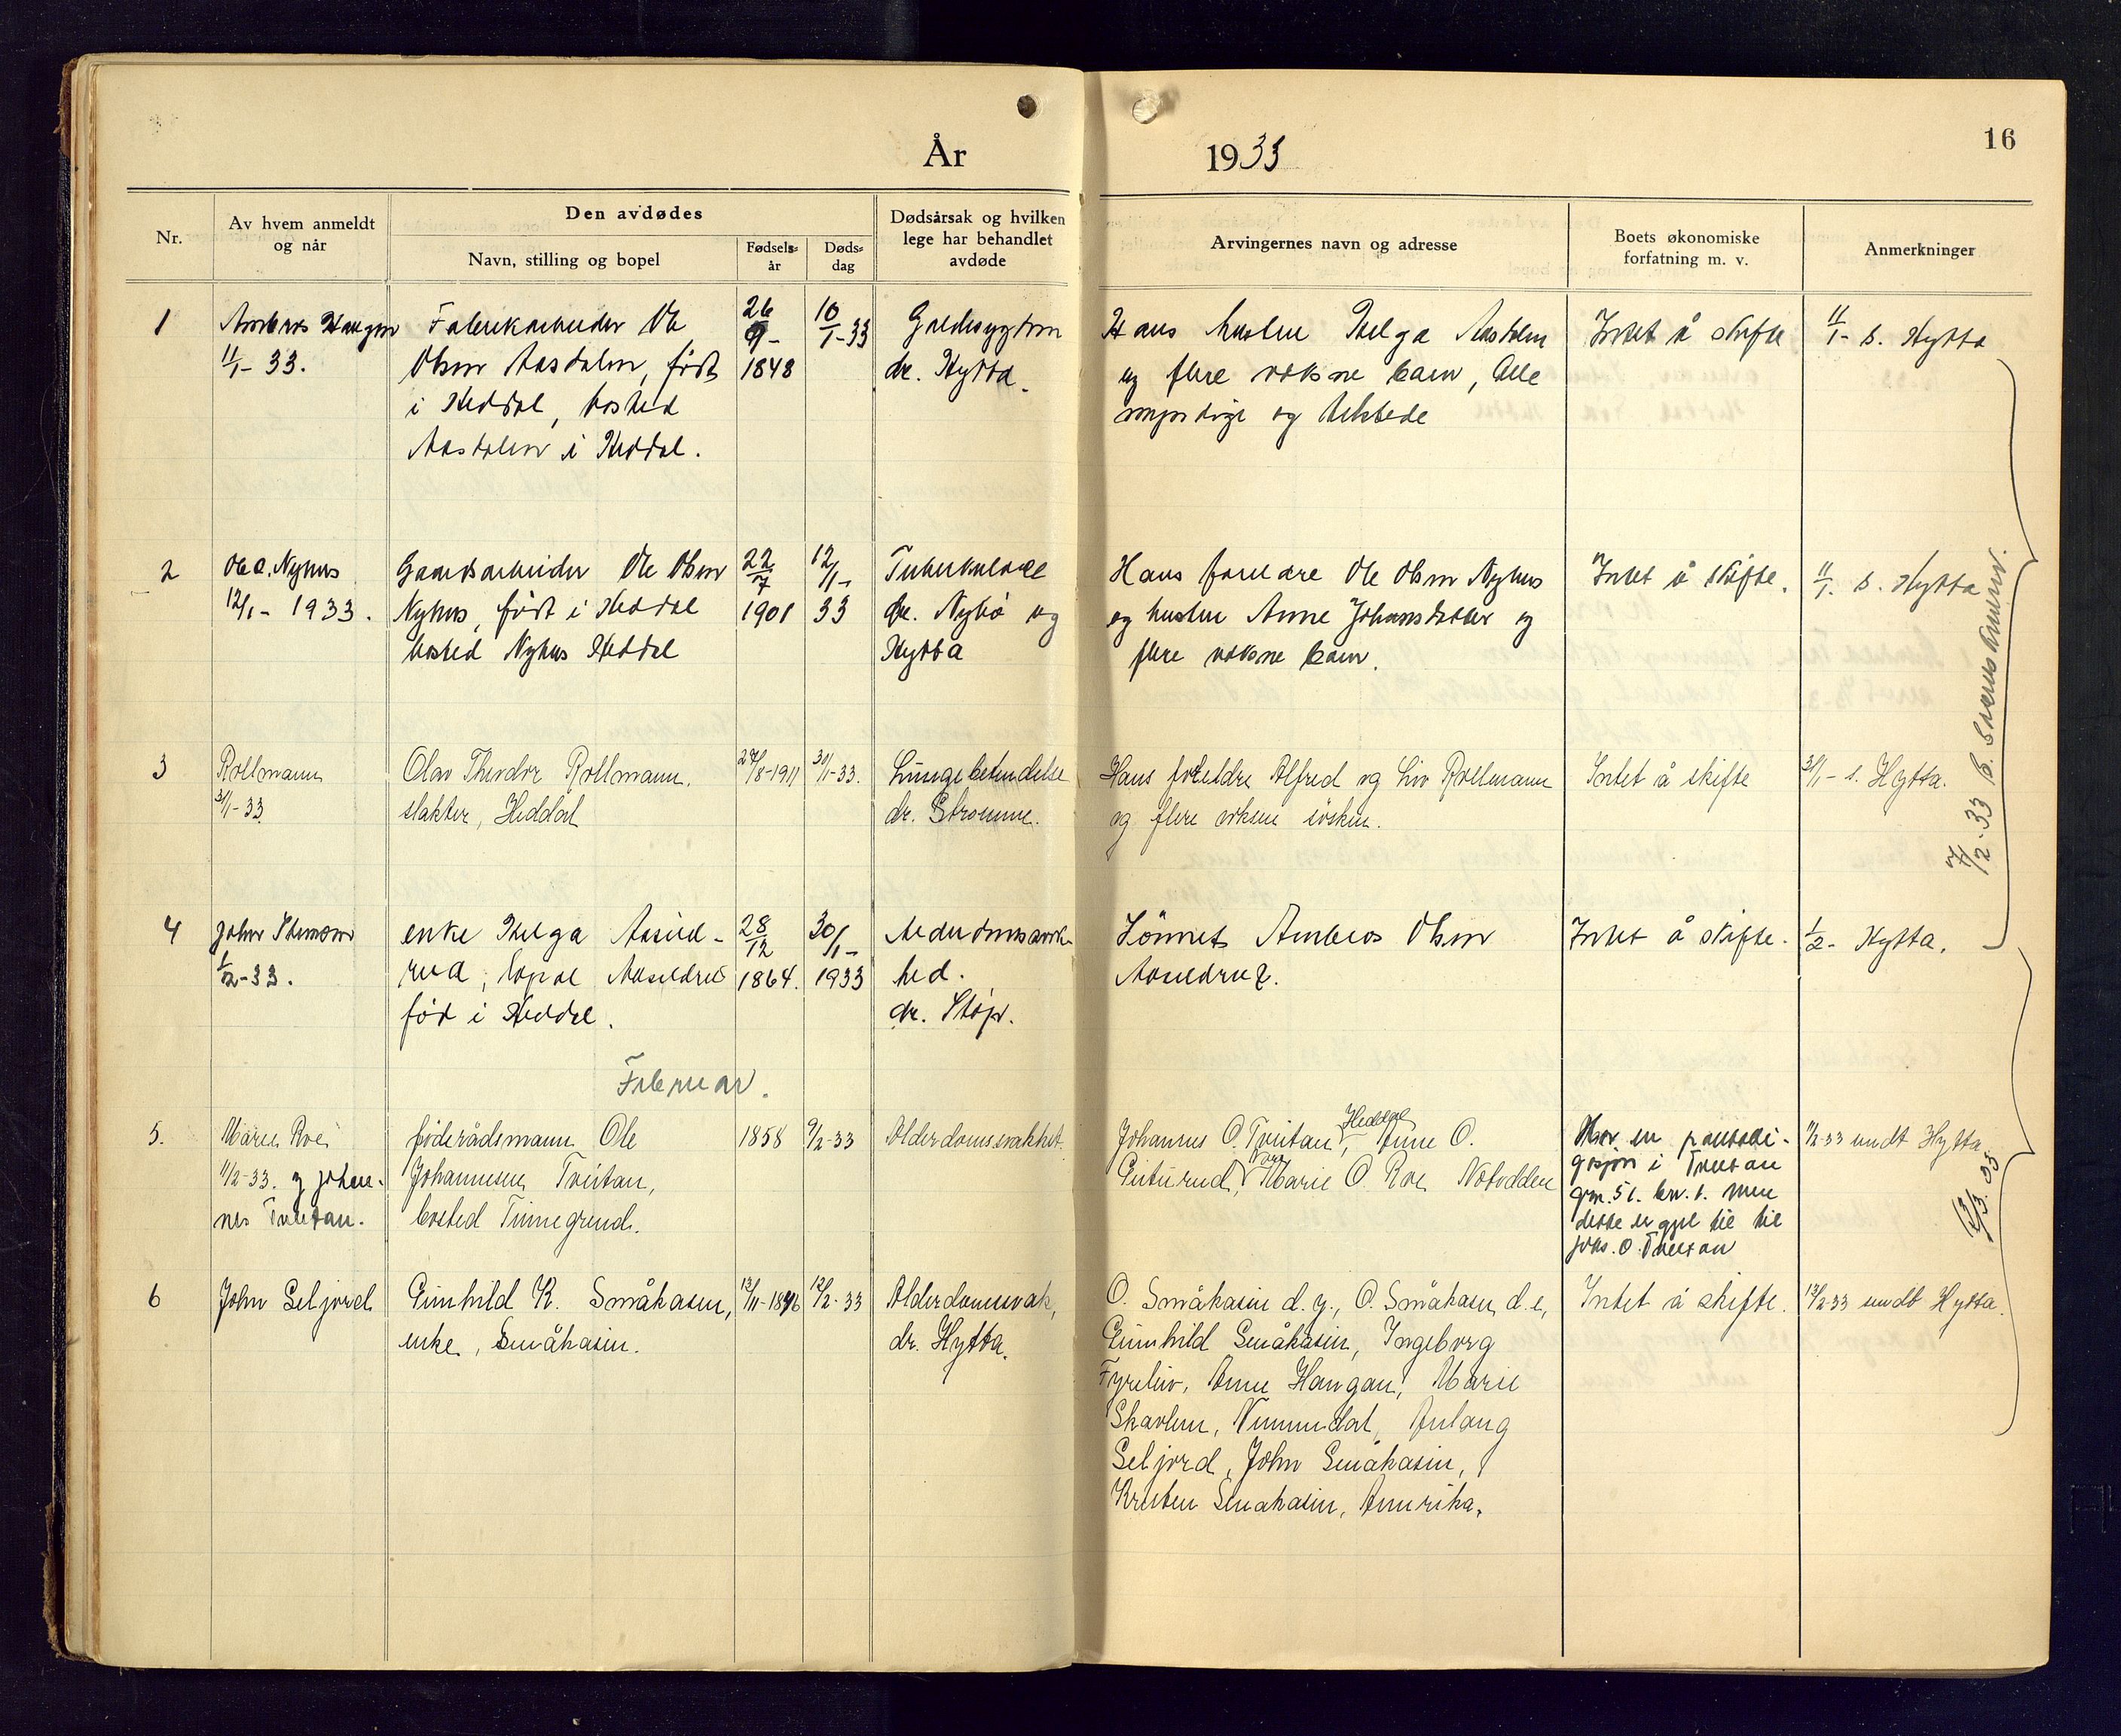 År 1933
16
Nr.
Av hvem anmeldt
og når
Den avdødes
Navn, stilling og bopel
Fødsels-
år
Døds-
dag
Dødsårsak og hvilken
lege har behandlet
avdøde
Arvingernes navn og adresse
Boets økonomiske
forfatning m. v.
Anmerkninger
1
11/1-33.
Fabrikarbeider Ole
Olsen Aasdalen, født
i Heddal, bosted
Aasdalen i Heddal.
26
9-
1848
10
1-33
Galdesygdom
dr. Hytta.
Hans hustru Helga Aasdalen
og flere voksne barn, Alle
myndige og
Intet å skifte
11/1- s. Hytta
2
Ole O. Nyhus
12/1- 1933.
Gaardsarbeider Ole Olsen
Nyhus, født i Heddal
bosted Nyhus Heddal
22
7
1901
12/1-
33
Tuberkulose
dr. Nybø og
Hytta
Hans foreldre Ole Olsen Nyhus
og hustru Anne Johannsdatter og
flere voksne barn.
Intet å skifte.
11/1. s. Hytta
3
Rollmann
31/1-33.
Olav Theodor Rollmann.
slakter, Heddal
/8-1911
31/1-33.
Lungebetendelse
dr. Strømme.
Hans foreldre Alfred og Liv Rollmann
og flere voksne søsken.
Intet å skifte
31/1- s. Hytta.
7/2-33
4
John
1/2-33.
enke Helga
bopel
fød i Heddal.
28
12
1864.
30/1-
1933
hed.
dr. Støp.
Sønnen Ambros Olsen
Intet å skifte.
1/2- Hytta.
Februar.
5.
Marie Roe
11/2-33. og Johan-
nes Tveitan.
føderådsmann Ole
Johannesen Tveitan,
bosted Tinnegrend.
1858
9/2-33
Alderdomssvakhet.
Johannes O. Tveitan, Heddal, Anne O.
Marie O. Roe Notodden
Har en
i Tveitan
grn. 51. brn. 1. men
dette er til
Johs. O. Tveitan
11/2-33 sendt Hytta
13/3. 33
6
John Seljord
Gunhild K. Småkasin,
enke, Småkasin.
13/11-1846
12/2-33
Alderdomssvak,
dr. Hytta.
O. Småkasin d.y., O. Småkasin d.e,
Gunhild Småkasin, Ingeborg
Fyrileiv, Anne Haugan, Marie
Skavlem, Nummedal, Aslaug
Seljord, John Småkasin,
Småkasin, Amerika.
Intet å skifte.
13/2-33 sendt Hytta.